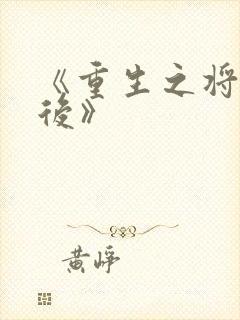 《重生之将
後》
黄崢